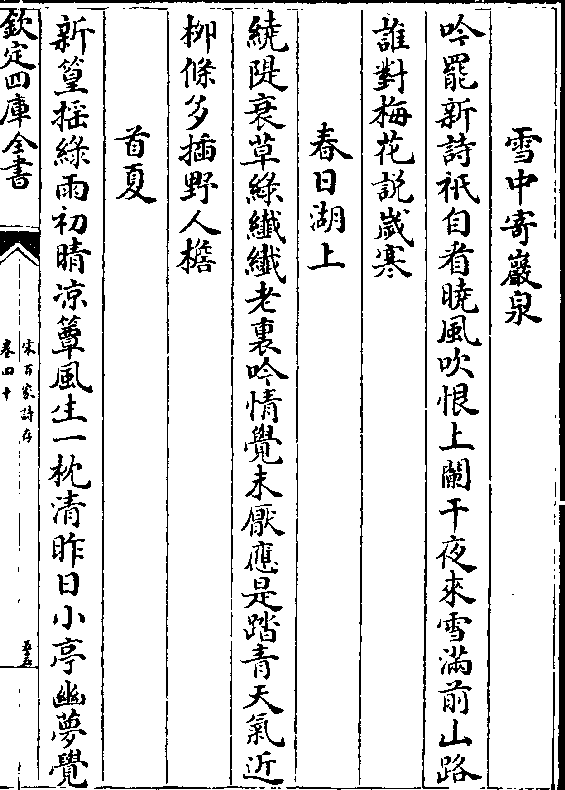 雪中寄巖泉
吟罷新詩祇自看曉風吹恨上闌干夜來雪滿前山路
誰對梅花説歳寒
春日湖上
繞隄衰草綠纖纖老裏吟情覺未厭應是踏青天氣近
柳條多插野人檐
首夏
新篁揺綠雨初晴凉簟風生一枕清昨日小亭幽夢覺
欽定四庫全書
宋百家詩存
卷四十